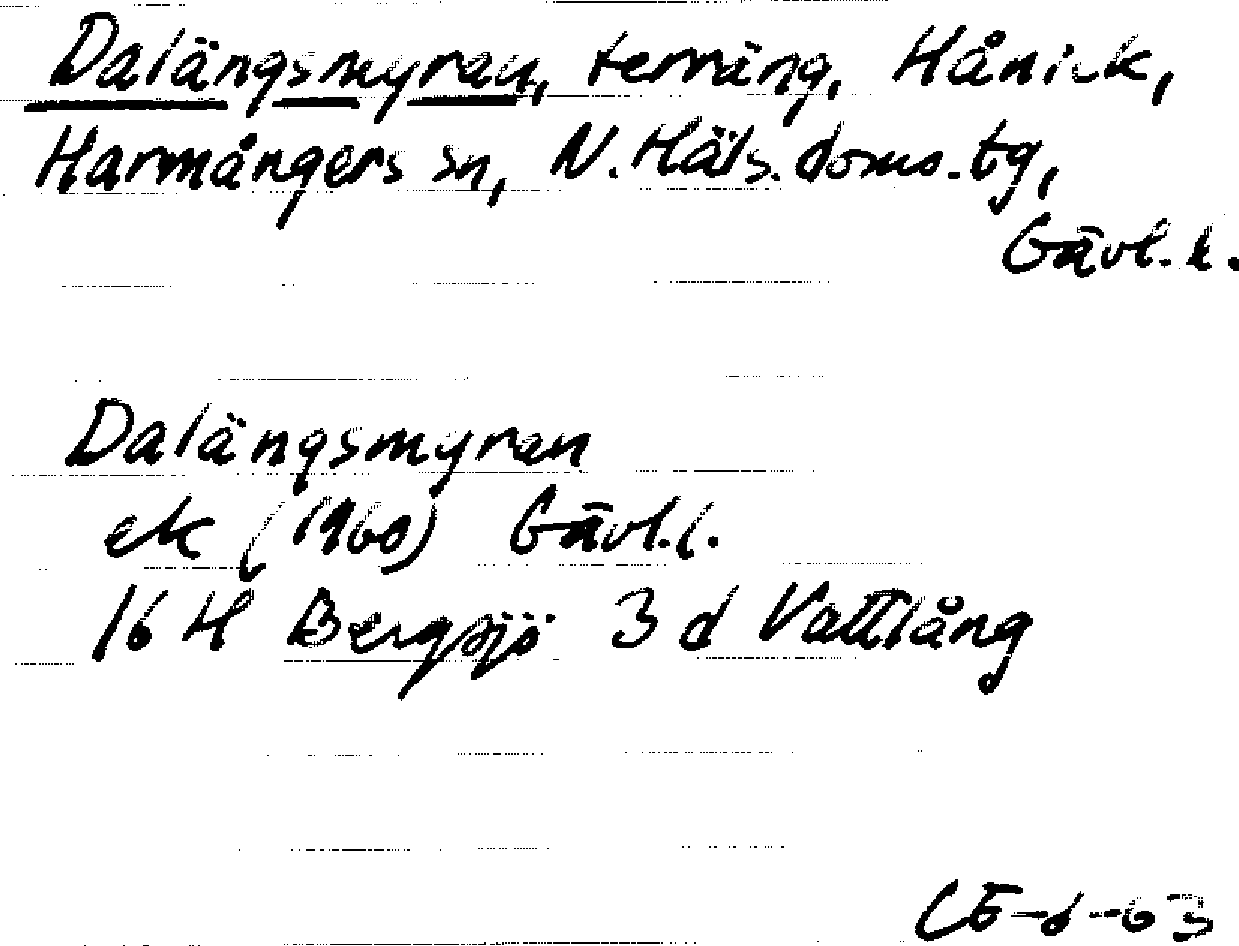 Dalängsmyran, terräng, Hånick,
Harmångers sn, N. Häls. doms. tg,
Gävl. l.
Dalängsmyran
ek (1960) Gävl. l.
16 H Bergsjö 3 d Vattlång